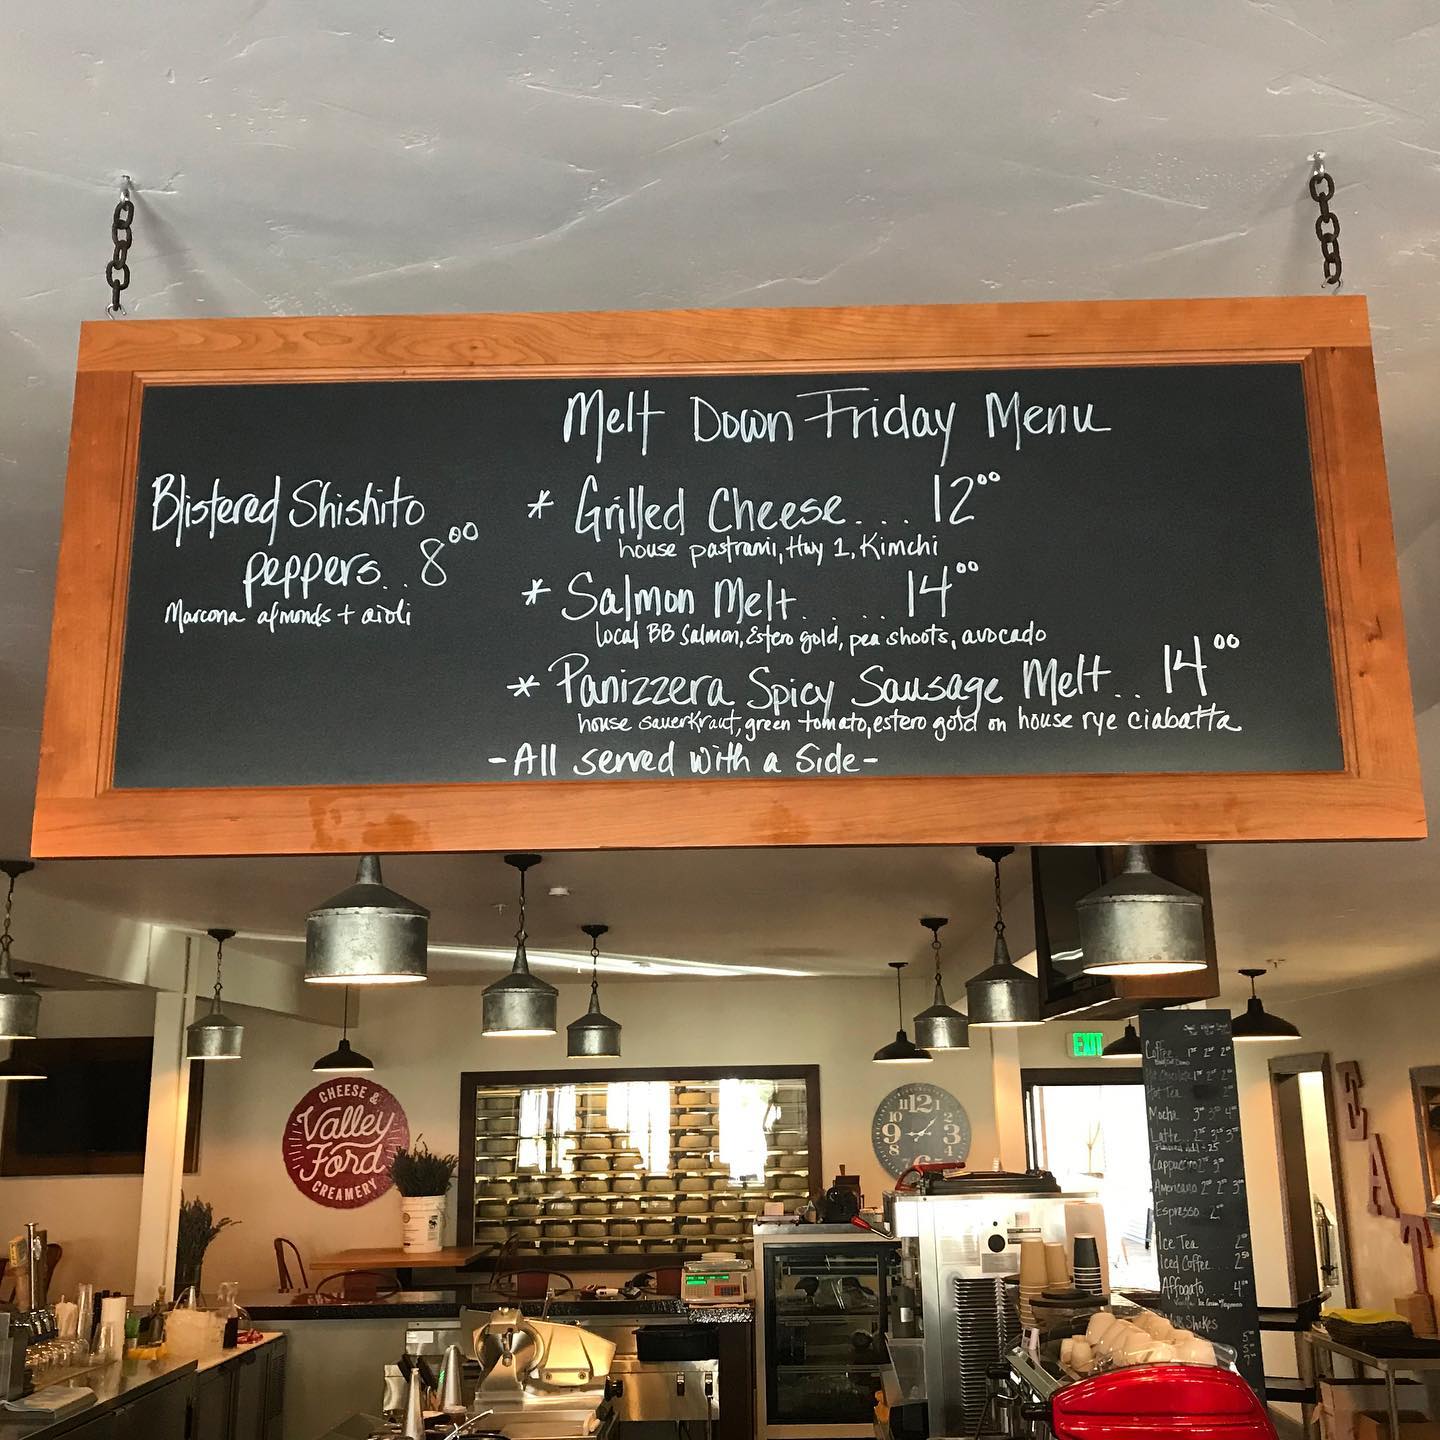 Melt Down Friday Menu
Blistered Shishito
peppers..8⁰⁰
Marcona almonds + aioli
* Grilled Cheese....12⁰⁰
house pastrami, Hwy 1, Kimchi
* Salmon Melt......14⁰⁰
local BB Salmon, Estero gold, pea shoots, avocado
* Panizzera Spicy Sausage Melt..14⁰⁰
house sauerkraut, green tomato, estero gold on house rye ciabatta
-All served with a Side-
CHEESE &
Valley
Ford
CREAMERY
11 12 1
10 2
9 3
8
6
EXIT
Coffee 1⁷⁵ 2²⁵ 2⁵⁰
Hot Tea
Mocha 3⁰⁰ 3⁵⁰ 4⁰⁰
Latte
Cappuccino
Americano
Espresso 2⁰⁰
Ice Tea 2⁰⁰
Iced Coffee.... 2⁵⁰
Affogato 4⁰⁰
Shakes
EAT